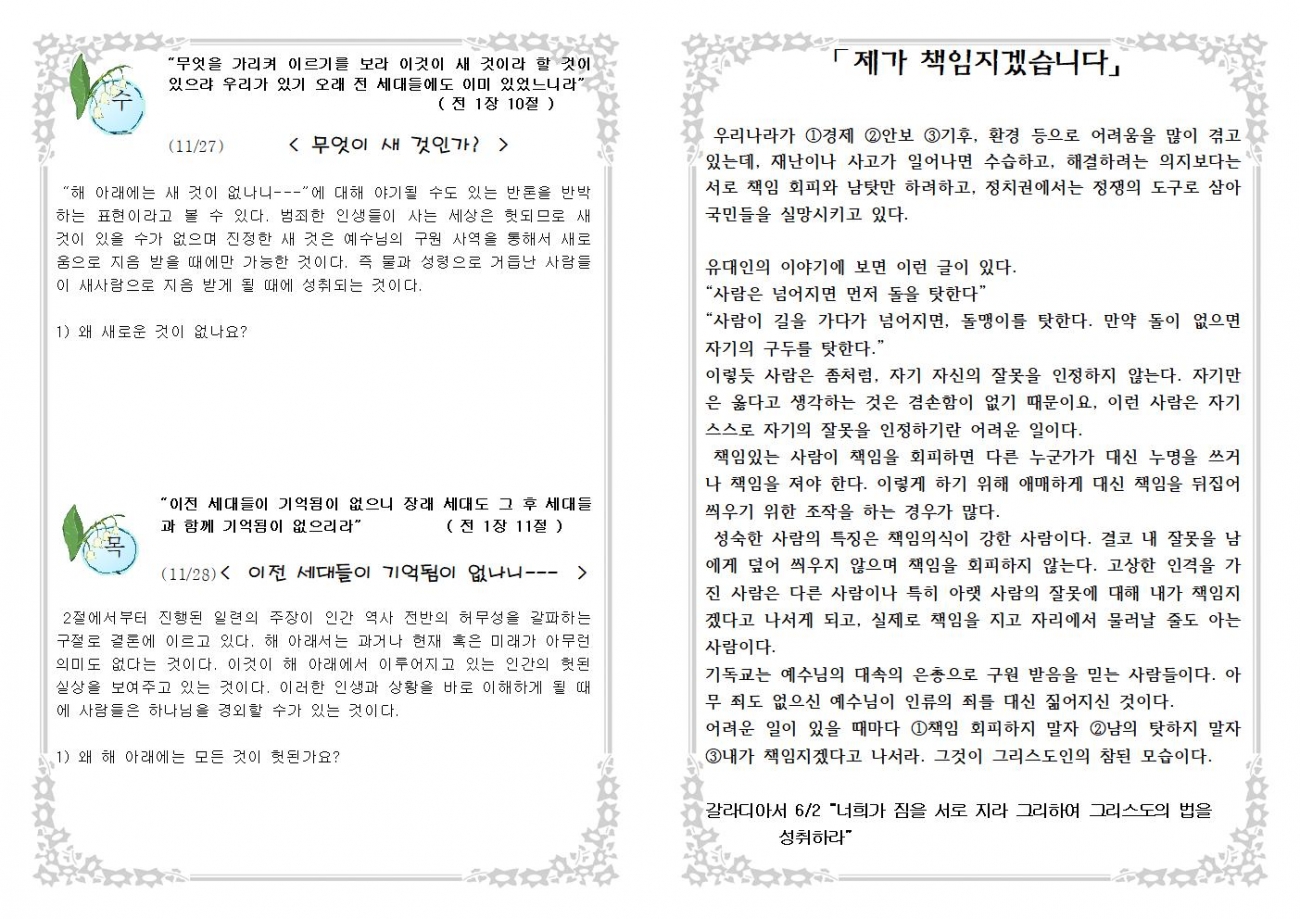 “무엇을 가리켜 이르기를 보라 이것이 새 것이라 할 것이
있으랴 우리가 있기 오래 전 세대들에도 이미 있었느니라”
( 전 1장 10절 )
수
(11/27) < 무엇이 새 것인가? >
“해 아래에는 새 것이 없나니---”에 대해 야기될 수도 있는 반론을 반박
하는 표현이라고 볼 수 있다. 범죄한 인생들이 사는 세상은 헛되므로 새
것이 있을 수가 없으며 진정한 새 것은 예수님의 구원 사역을 통해서 새로
움으로 지음 받을 때에만 가능한 것이다. 즉 물과 성령으로 거듭난 사람들
이 새사람으로 지음 받게 될 때에 성취되는 것이다.
1) 왜 새로운 것이 없나요?
“이전 세대들이 기억됨이 없으니 장래 세대도 그 후 세대들
과 함께 기억됨이 없으리라” ( 전 1장 11절 )
목
(11/28)< 이전 세대들이 기억됨이 없나니--- >
2절에서부터 진행된 일련의 주장이 인간 역사 전반의 허무성을 갈파하는
구절로 결론에 이르고 있다. 해 아래서는 과거나 현재 혹은 미래가 아무런
의미도 없다는 것이다. 이것이 해 아래에서 이루어지고 있는 인간의 헛된
실상을 보여주고 있는 것이다. 이러한 인생과 상황을 바로 이해하게 될 때
에 사람들은 하나님을 경외할 수가 있는 것이다.
1) 왜 해 아래에는 모든 것이 헛된가요?
「제가 책임지겠습니다」
우리나라가 ①경제 ②안보 ③기후, 환경 등으로 어려움을 많이 겪고
있는데, 재난이나 사고가 일어나면 수습하고, 해결하려는 의지보다는
서로 책임 회피와 남탓만 하려하고, 정치권에서는 정쟁의 도구로 삼아
국민들을 실망시키고 있다.
유대인의 이야기에 보면 이런 글이 있다.
“사람은 넘어지면 먼저 돌을 탓한다”
“사람이 길을 가다가 넘어지면, 돌맹이를 탓한다. 만약 돌이 없으면
자기의 구두를 탓한다.”
이렇듯 사람은 좀처럼, 자기 자신의 잘못을 인정하지 않는다. 자기만
은 옳다고 생각하는 것은 겸손함이 없기 때문이요, 이런 사람은 자기
스스로 자기의 잘못을 인정하기란 어려운 일이다.
책임있는 사람이 책임을 회피하면 다른 누군가가 대신 누명을 쓰거
나 책임을 져야 한다. 이렇게 하기 위해 애매하게 대신 책임을 뒤집어
씌우기 위한 조작을 하는 경우가 많다.
성숙한 사람의 특징은 책임의식이 강한 사람이다. 결코 내 잘못을 남
에게 덮어 씌우지 않으며 책임을 회피하지 않는다. 고상한 인격을 가
진 사람은 다른 사람이나 특히 아랫 사람의 잘못에 대해 내가 책임지
겠다고 나서게 되고, 실제로 책임을 지고 자리에서 물러날 줄도 아는
사람이다.
기독교는 예수님의 대속의 은총으로 구원 받음을 믿는 사람들이다. 아
무 죄도 없으신 예수님이 인류의 죄를 대신 짊어지신 것이다.
어려운 일이 있을 때마다 ①책임 회피하지 말자 ②남의 탓하지 말자
③내가 책임지겠다고 나서라. 그것이 그리스도인의 참된 모습이다.
갈라디아서 6/2 “너희가 짐을 서로 지라 그리하여 그리스도의 법을
성취하라”